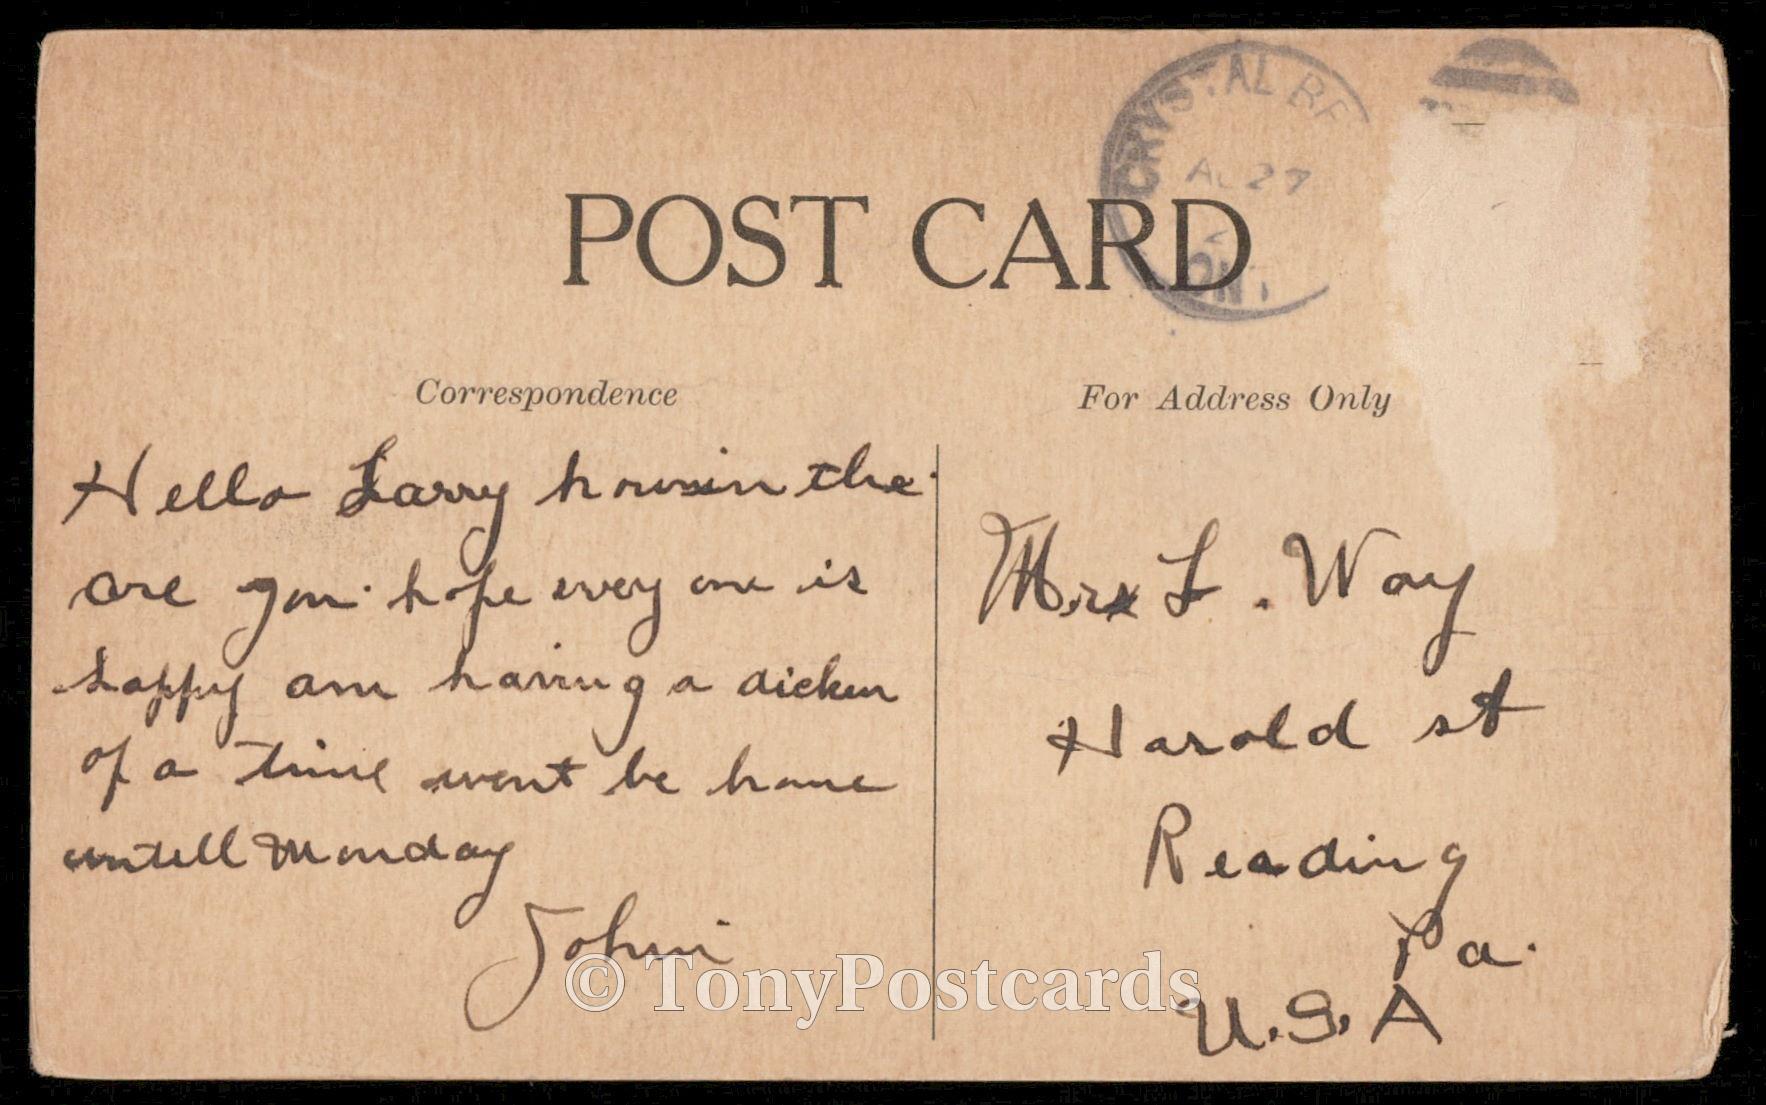 CRYSTAL BE
AU 27
ONT
POST CARD
Correspondence
For Address Only
Hello Larry howin the
are you. hope every one is
happy am having a dicken
of a time wont be home
untell Monday
John
Mrs L. Way
Harold st
Reading
Pa.
U.S.A
© TonyPostcards